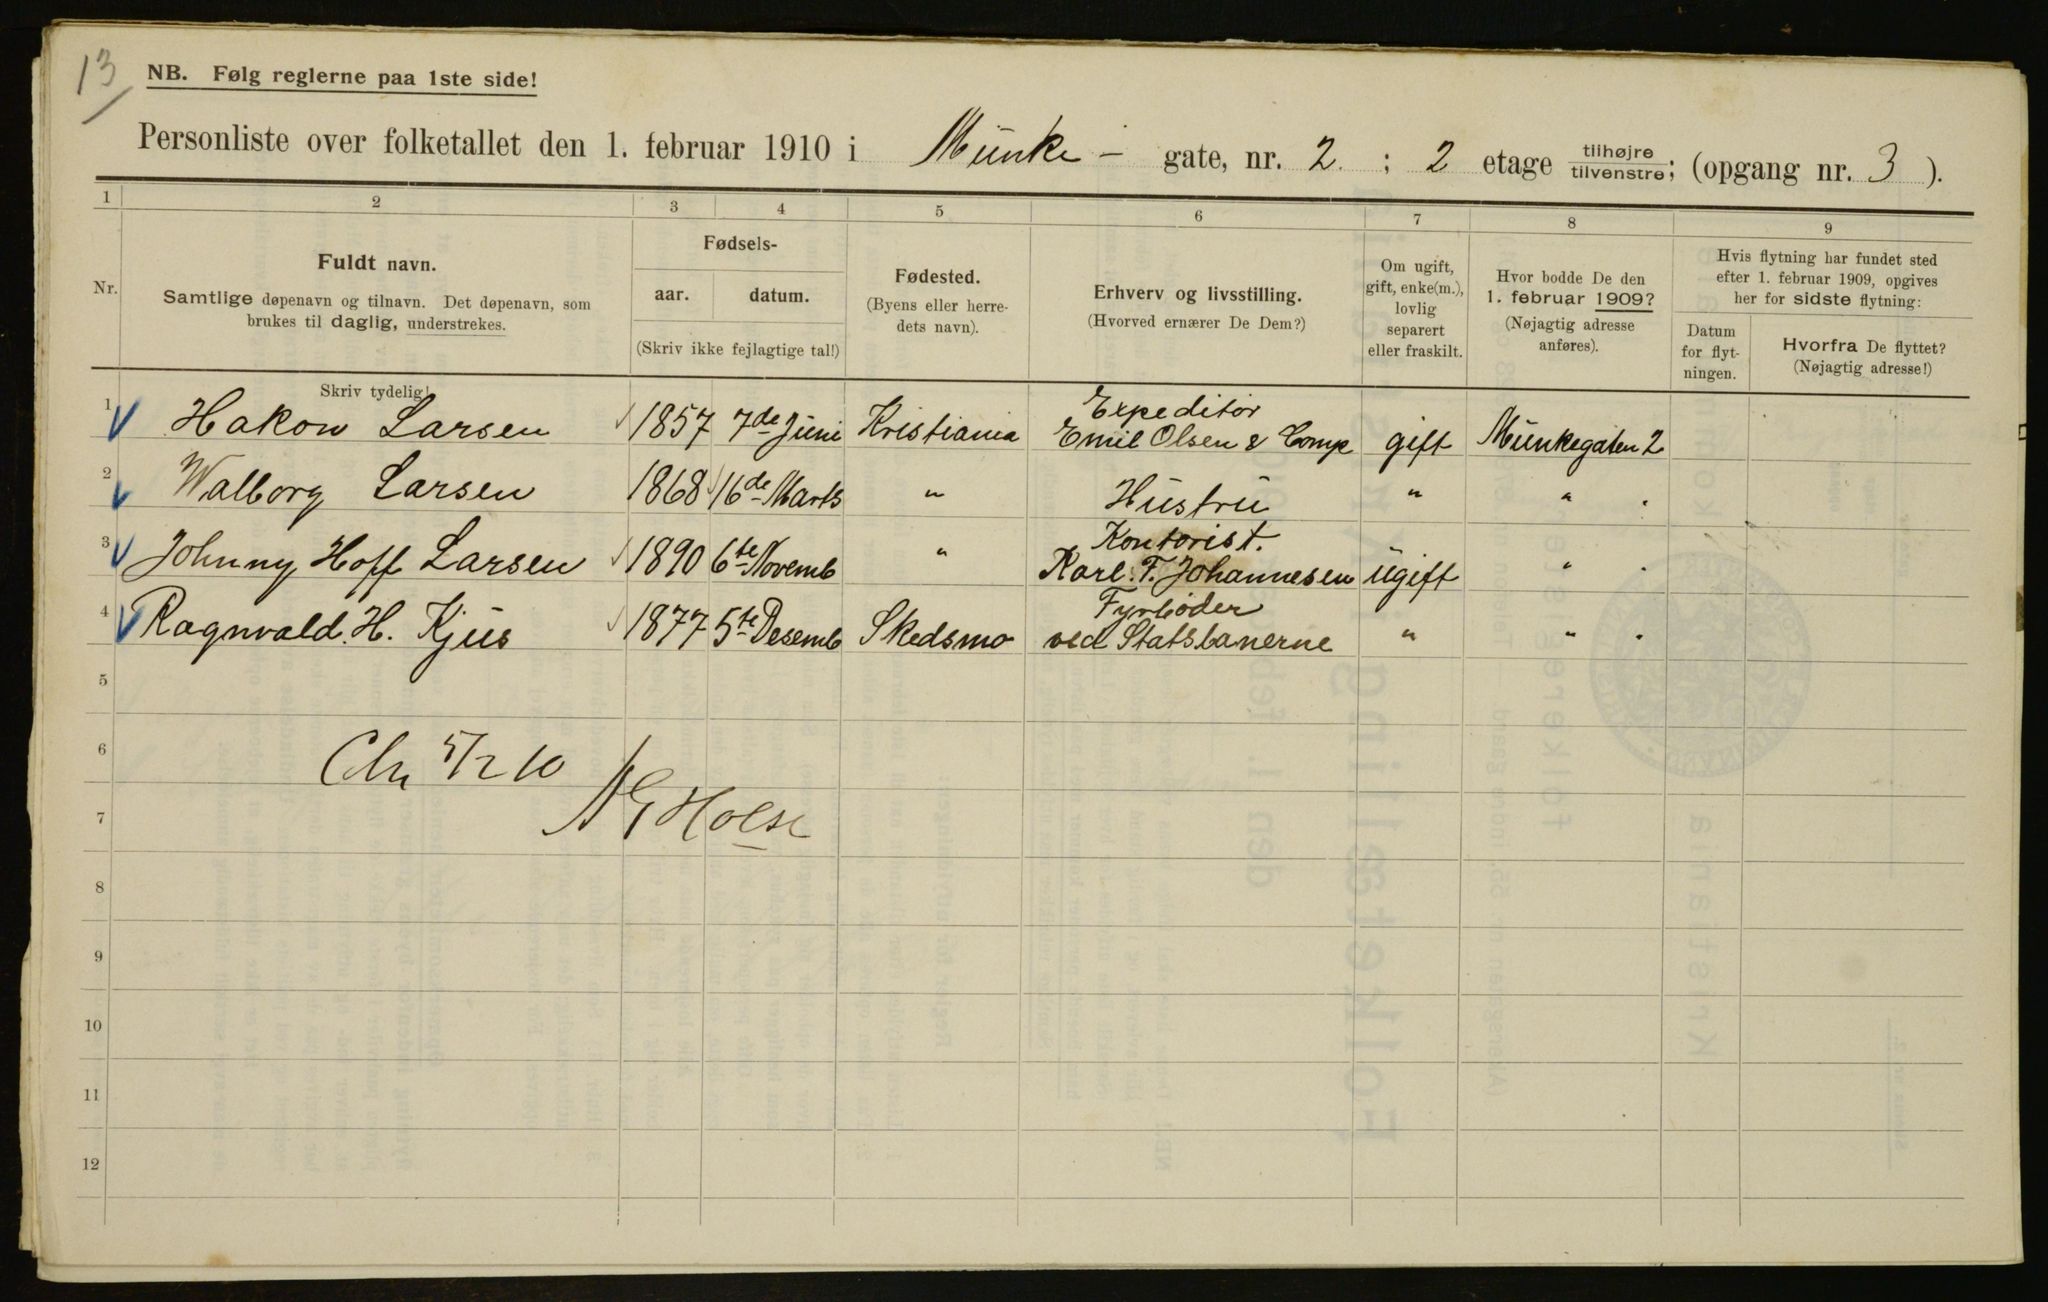 13
NB. Følg reglerne paa 1ste side!
Personliste over folketallet den 1. februar 1910 i Munke- gate, nr. 2. ; 2 etage tilhøjre/tilvenstre; (opgang nr. 3 ).
1 2 3 4 5 6 7 8 9
Nr.
Fuldt navn.
Samtlige døpenavn og tilnavn. Det døpenavn, som
brukes til daglig, understrekes.
Skriv tydelig!
Fødsels-
aar. datum.
(Skriv ikke fejlagtige tal!)
Fødested.
(Byens eller herre-
dets navn).
Erhverv og livsstilling.
(Hvorved ernærer De Dem?)
Om ugift,
gift, enke(m.),
lovlig
separert
eller fraskilt.
Hvor bodde De den
1. februar 1909?
(Nøjagtig adresse
anføres).
Hvis flytning har fundet sted
efter 1. februar 1909, opgives
her for sidste flytning:
Datum
for flyt-
ningen.
Hvorfra De flyttet?
(Nøjagtig adresse!)
Expeditör
1 Hakon Larsen 1857 7de Juni Kristiania Emil Olsen & Comp gift Munkegaten 2
2 Walborg Larsen 1868 16de Marts " Hustru " " .
Kontorist.
3 Johnny Hoff Larsen 1890 6te Novemb " Karl. F. Johannesen ugift " .
Fyrböder
4 Ragnvald. H. Kjus 1877 5te Desemb Skedsmo ved Statsbanerne " " .
5
6
Chr 5/2 10
7
8
9
10
11
12